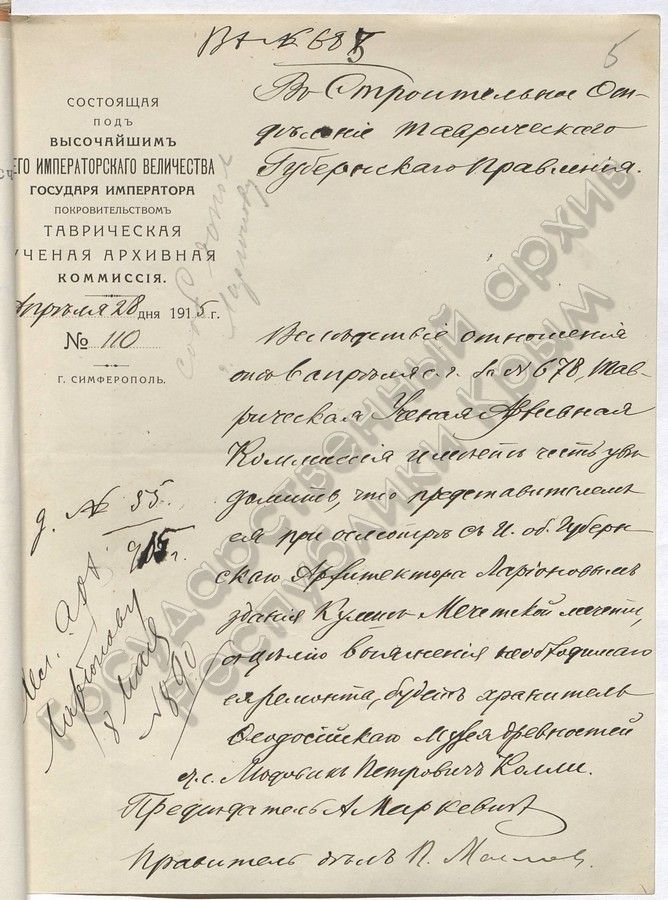 Вх № 685
5
СОСТОЯЩАЯ
ПОДЪ
ВЫСОЧАЙШИМЪ
ЕГО ИМПЕРАТОРСКАГО ВЕЛИЧЕСТВА
ГОСУДАРЯ ИМПЕРАТОРА
ПОКРОВИТЕЛЬСТВОМЪ
ТАВРИЧЕСКАЯ
УЧЕНАЯ АРХИВНАЯ
КОММИССІЯ.
Апрѣля 28 дня 1915 г.
№ 110
Г. СИМФЕРОПОЛЬ.
Въ Строительное От-
дѣленіе Таврическаго
Губернскаго Правленія.
Вслѣдствіе отношенія
отъ 8 апрѣля с. г. за № 678, Тав-
рическая Ученая Архивная
Коммиссія имѣетъ честь уве-
домить, что представителемъ
ея при осмотрѣ съ И. об. Губерн-
скаго Архитектора Ларіоновымъ
зданія Куршумъ
Мечетской мечети,
съ цѣлью выясненія необходимаго
ея ремонта, будетъ хранитель
Ѳеодосійскаго Музея древностей
Людовикъ Петровичъ Колли.
Предсѣдатель А Маркевичъ
Правитель дѣлъ П. Масловъ.
д. № 35.
915 г.
Ларіонову
8 мая
№ 890
Государственный архив
Республики Крым